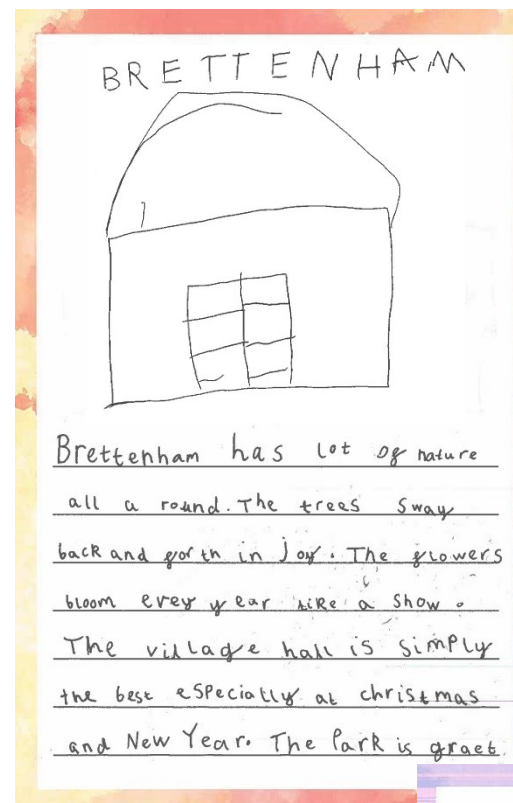 BRETTENHAM
Brettenham has lot of nature
all a round. The trees sway
back and forth in joy. The flowers
bloom evey year like a show.
The village hall is simply
the best especially at christmas
and New Year. The Park is graet